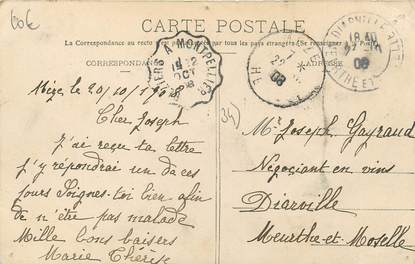 60€
CARTE POSTALE
La Correspondance au recto par tous les pays étrangers (Se renseigner
CORRESPONDANCE
ADRESSE
A MONTPELLIER
OCT
08
08
DIARVILLE
18 40
08
34
20/10/1908
Cher Joseph
J'ai reçu ta lettre
J'y répondrai un de ces
jours Soignes-toi bien afin
de n'être pas malade
Mille bons baisers
Marie Thérèse
Mr Joseph Gayraud
Négociant en vins
Diarville
Meurthe-et-Moselle